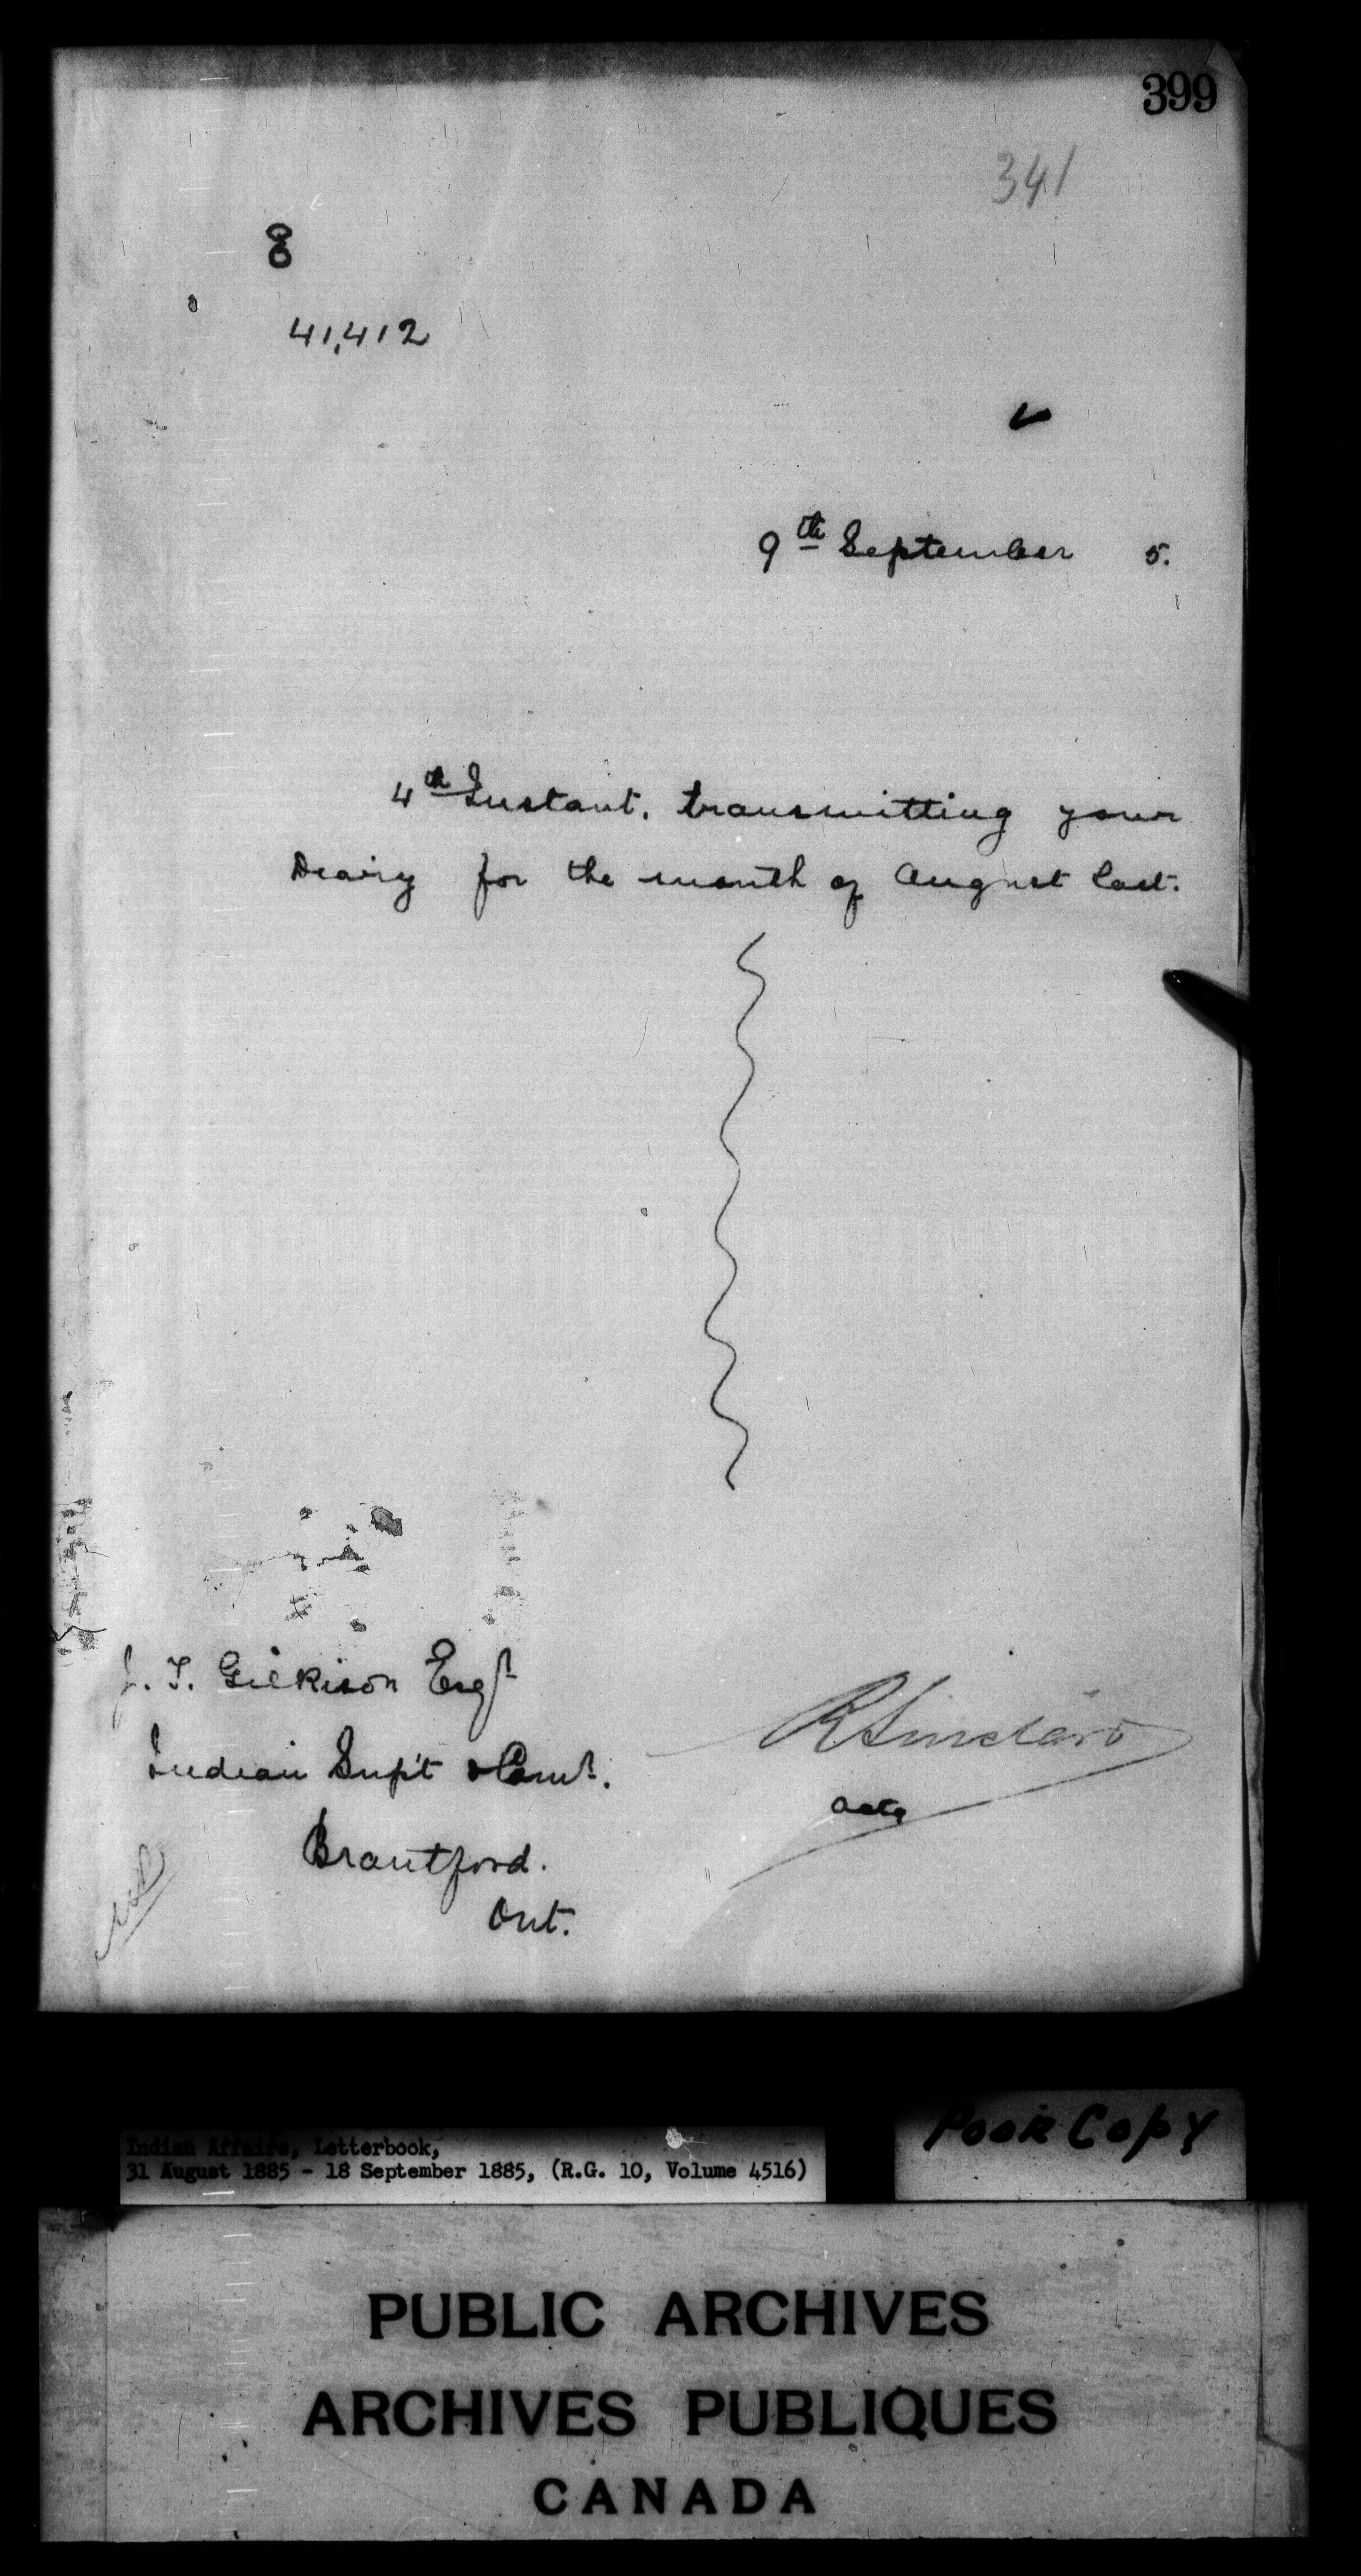 399
341
8
41,412
9th September 5.
4th Instant, transmitting your
Diary for the month of August last.
J. T. Gilkison Esqr
Indian Supt & Comr.
Brantford.
Ont.
R Sinclair
actg
Indian Affairs, Letterbook,
31 August 1885 - 18 September 1885, (R.G. 10, Volume 4516)
Poor Copy
PUBLIC ARCHIVES
ARCHIVES PUBLIQUES
CANADA